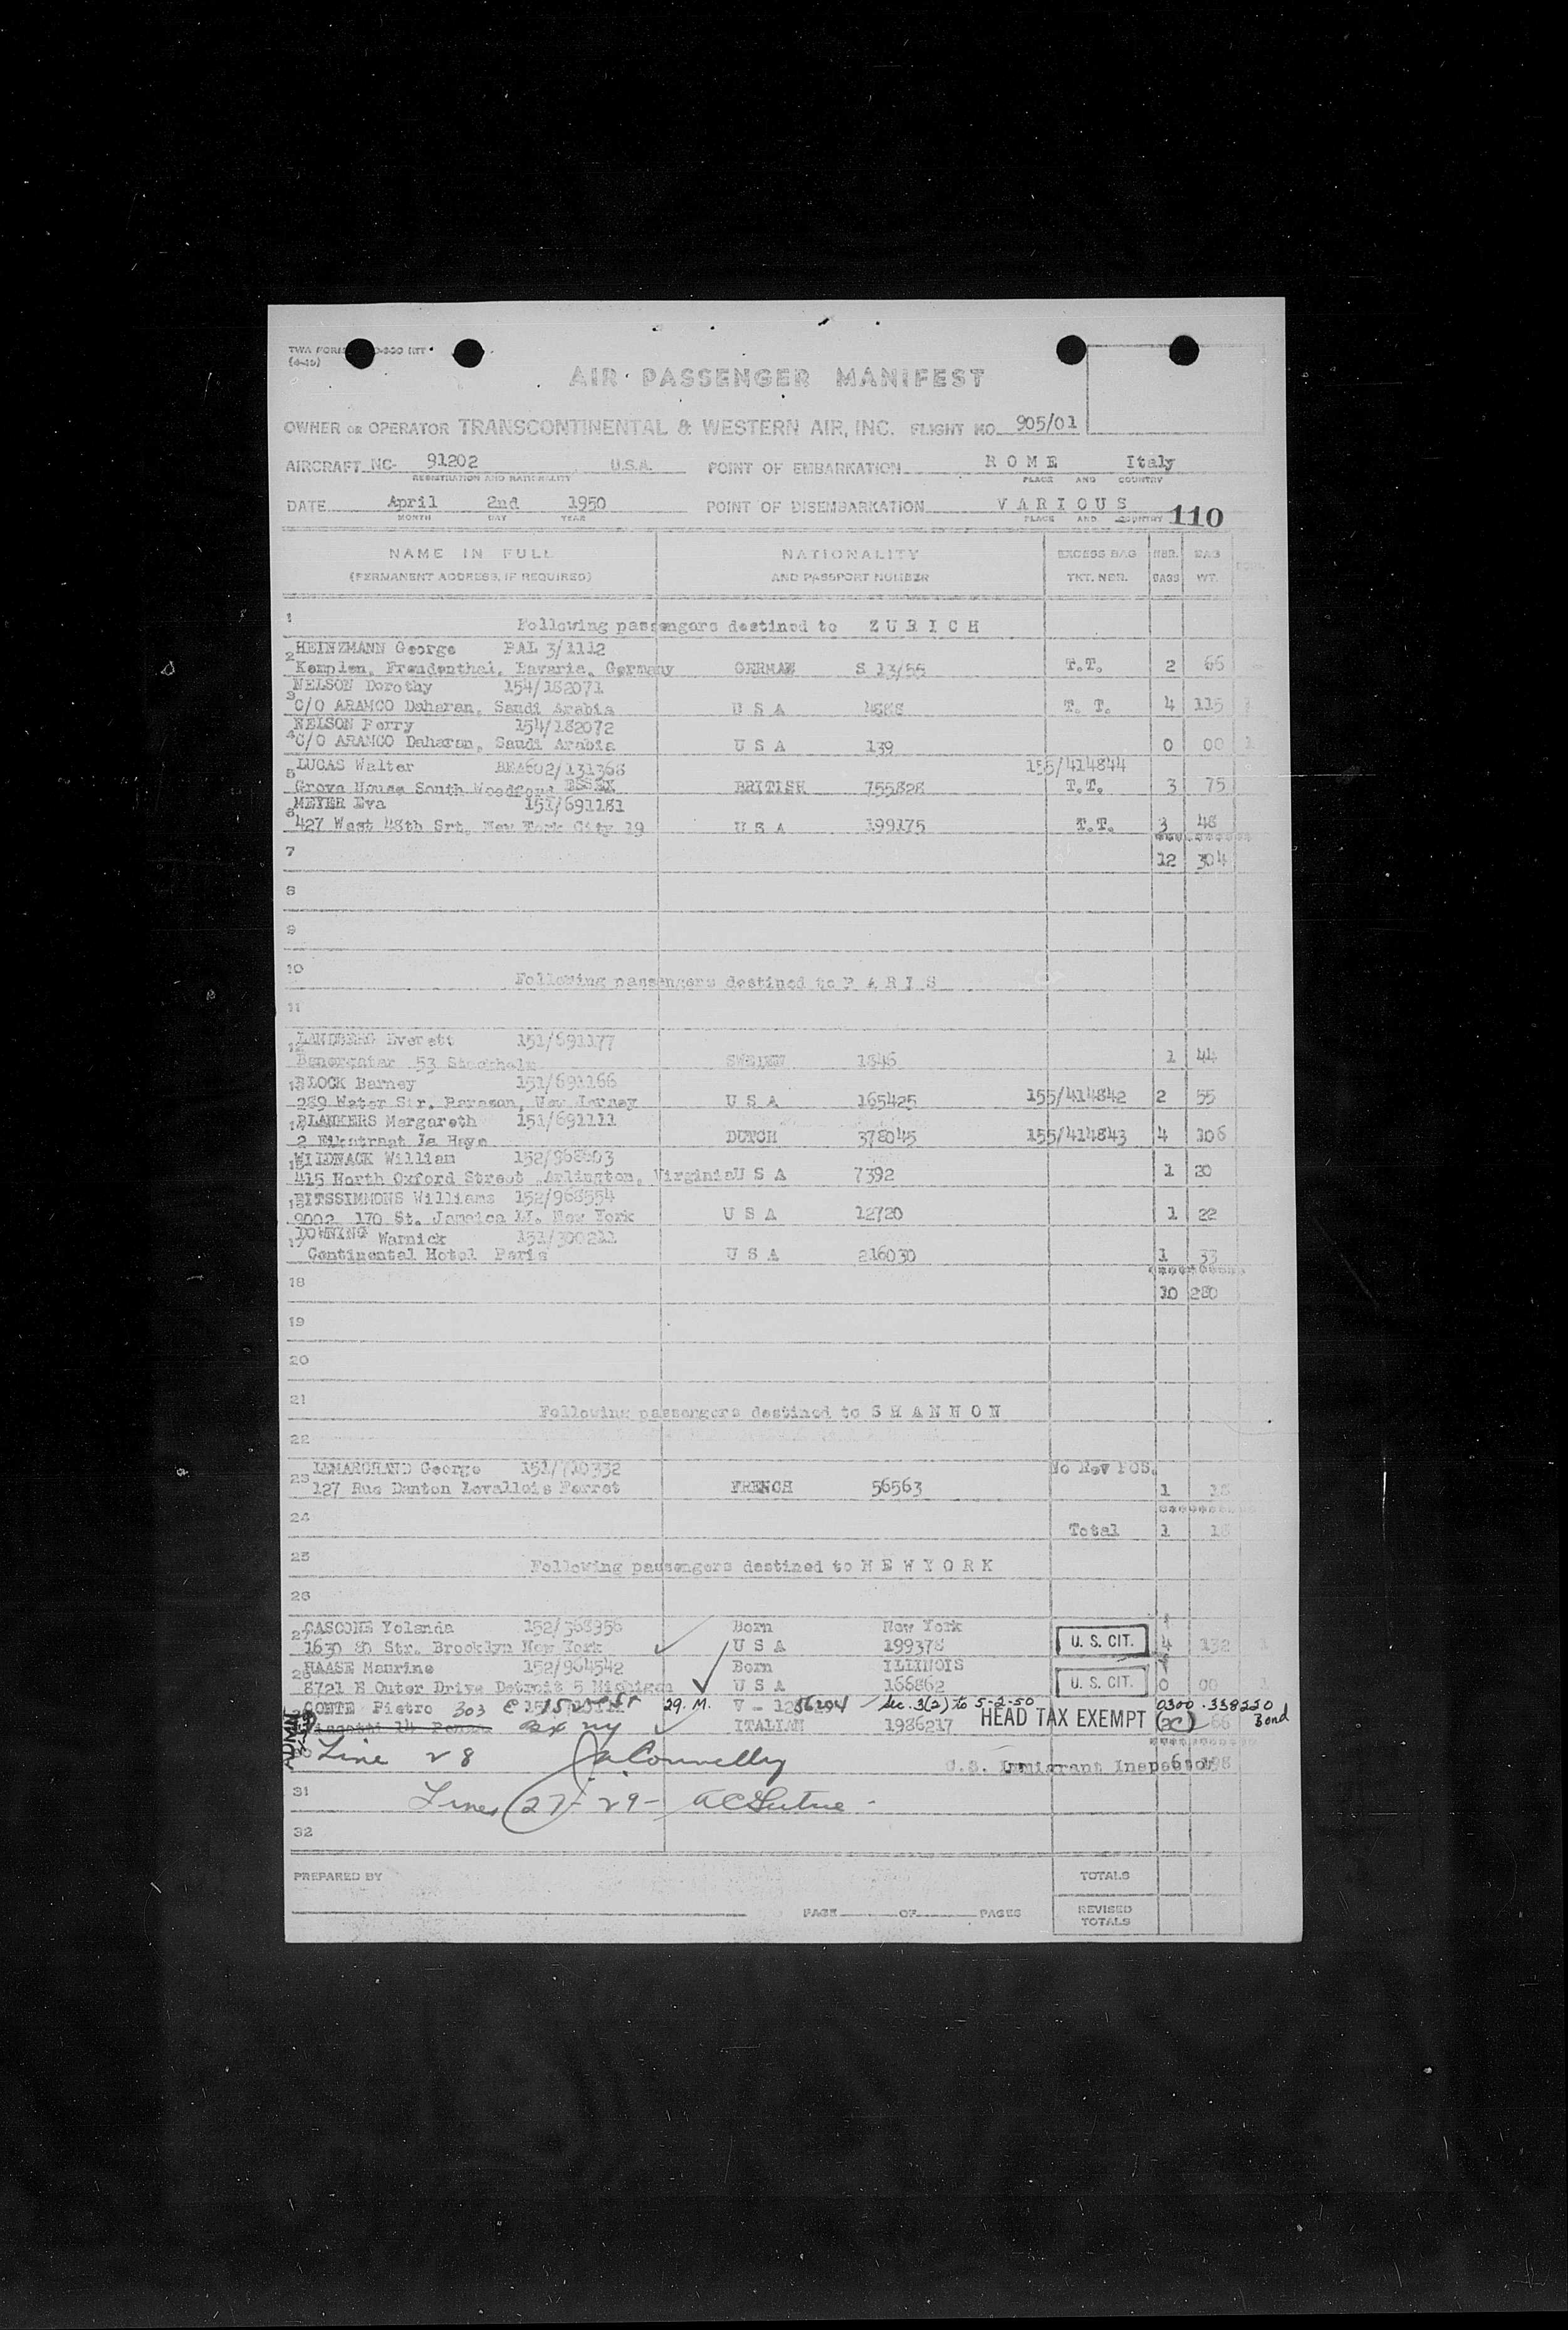 TWA FORM
AIR PASSENGER MANIFEST
OWNER OR OPERATOR TRANSCONTINENTAL & WESTERN AIR, INC. FLIGHT NO. 905/01
AIRCRAFT NC- 91202 U.S.A. POINT OF EMBARKATION ROME Italy
REGISTRATION AND NATIONALITY PLACE AND COUNTRY
DATE April 2nd 1950 POINT OF DISEMBARKATION VARIOUS
MONTH DAY YEAR PLACE AND COUNTRY 110
NAME IN FULL NATIONALITY EXCESS BAG NBR. BAG
(PERMANENT ADDRESS, IF REQUIRED) AND PASSPORT NUMBER TKT. NBR. BAGS WT.
1 Following passengers destined to ZURICH
HEINZMANN George PAL 3/1112
2 Freudenthal, Bavaria, Germany GERMAN S 13/55 T.T. 2 66
NELSON Dorothy 154/182071
3 C/O ARAMCO Daharan, Saudi Arabia U S A T. T. 4 115
NELSON Perry 154/182072
4 C/O ARAMCO Daharan, Saudi Arabia U S A 139 0 00 1
LUCAS Walter BEA602/131368 155/414844
5 Grove House South Woodford ESSEX BRITISH 755828 T.T. 3 75
MEYER Eva 151/691181
6 427 West 48th Srt, New York City 19 U S A 199175 T.T. 3 48
7 12 304
8
9
10 Following passengers destined to PARIS
11
12 Everett 151/691177
53 Stockholm SWEDEN 1846 1 44
13 BLOCK Barney 151/691166
289 Water Str. New Jersey U S A 165425 155/414842 2 55
14 BLANKERS Margareth 151/691111
2 La Haye DUTCH 378045 155/414843 4 106
15 WILDNACK William 152/968603
415 North Oxford Street Arlington, Virginia U S A 7392 1 20
16 FITSSIMMONS Williams 152/968554
9002 170 St. Jamaica LI. New York U S A 12720 1 22
17 DOWNING Warnick 151/300211
Continental Hotel Paris U S A 216030 1 33
18 10 280
19
20
21 Following passengers destined to SHANNON
22
LEMARCHAND George 151/710332 No Rev POS.
23 127 Rue Danton Levallois Perret FRENCH 56563 1 18
24 Total 1 18
25 Following passengers destined to NEW YORK
26
27 CASCONE Yolanda 152/368956 Born New York
1630 80 Str. Brooklyn New York U S A 199378 U. S. CIT. 4 132 1
28 HAASE Maurine 152/964542 Born ILLINOIS
8721 E Outer Drive Detroit 5 Michigan U S A 166862 U. S. CIT. 0 00 1
CONTE Pietro 303 E 29. M. V - Sec. 3(2) to 5-2-50 0300-338220
Bx NY ITALIAN 1986217 HEAD TAX EXEMPT (2C) 66 Bond
Line 28 JaConnelly U.S. Immigrant Inspector 6 198
31 Lines 27-29-
32
PREPARED BY TOTALS
PAGE OF PAGES REVISED
TOTALS